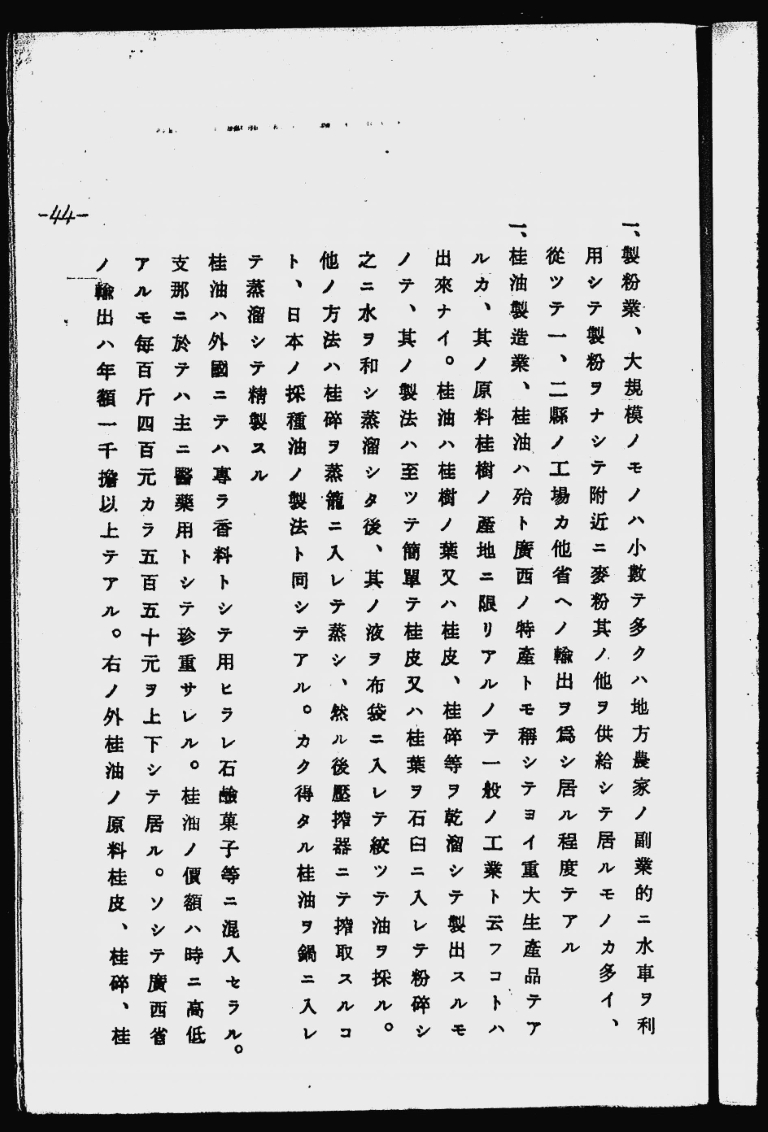 一、製粉業、大規模ノモノハ小數テ多クハ地方農家ノ副業的ニ水車ヲ利
用シテ製粉ヲナシテ附近ニ麥粉其ノ他ヲ供給シテ居ルモノカ多イ、
從ツテ一、二縣ノ工場カ他省ヘノ輸出ヲ爲シ居ル程度テアル
一、桂油製造業、桂油ハ殆ト廣西ノ特產トモ稱シテヨイ重大生產品テア
ルカ、其ノ原料桂樹ノ產地ニ限リアルノテ一般ノ工業ト云フコトハ
出來ナイ。桂油ハ桂樹ノ葉又ハ桂皮、桂碎等ヲ乾溜シテ製出スルモ
ノテ、其ノ製法ハ至ツテ簡單テ桂皮又ハ桂葉ヲ石臼ニ入レテ粉碎シ
之ニ水ヲ和シ蒸溜シタ後、其ノ液ヲ布袋ニ入レテ絞ツテ油ヲ採ル。
他ノ方法ハ桂碎ヲ蒸籠ニ入レテ蒸シ、然ル後壓搾器ニテ搾取スルコ
ト、日本ノ採種油ノ製法ト同シテアル。カク得タル桂油ヲ鍋ニ入レ
テ蒸溜シテ精製スル
桂油ハ外國ニテハ專ラ香料トシテ用ヒラレ石鹼菓子等ニ混入セラル。
支那ニ於テハ主ニ醫藥用トシテ珍重サレル。桂油ノ價額ハ時ニ高低
アルモ每百斤四百元カラ五百五十元ヲ上下シテ居ル。ソシテ廣西省
ノ輸出ハ年額一千擔以上テアル。右ノ外桂油ノ原料桂皮、桂碎、桂
-44-